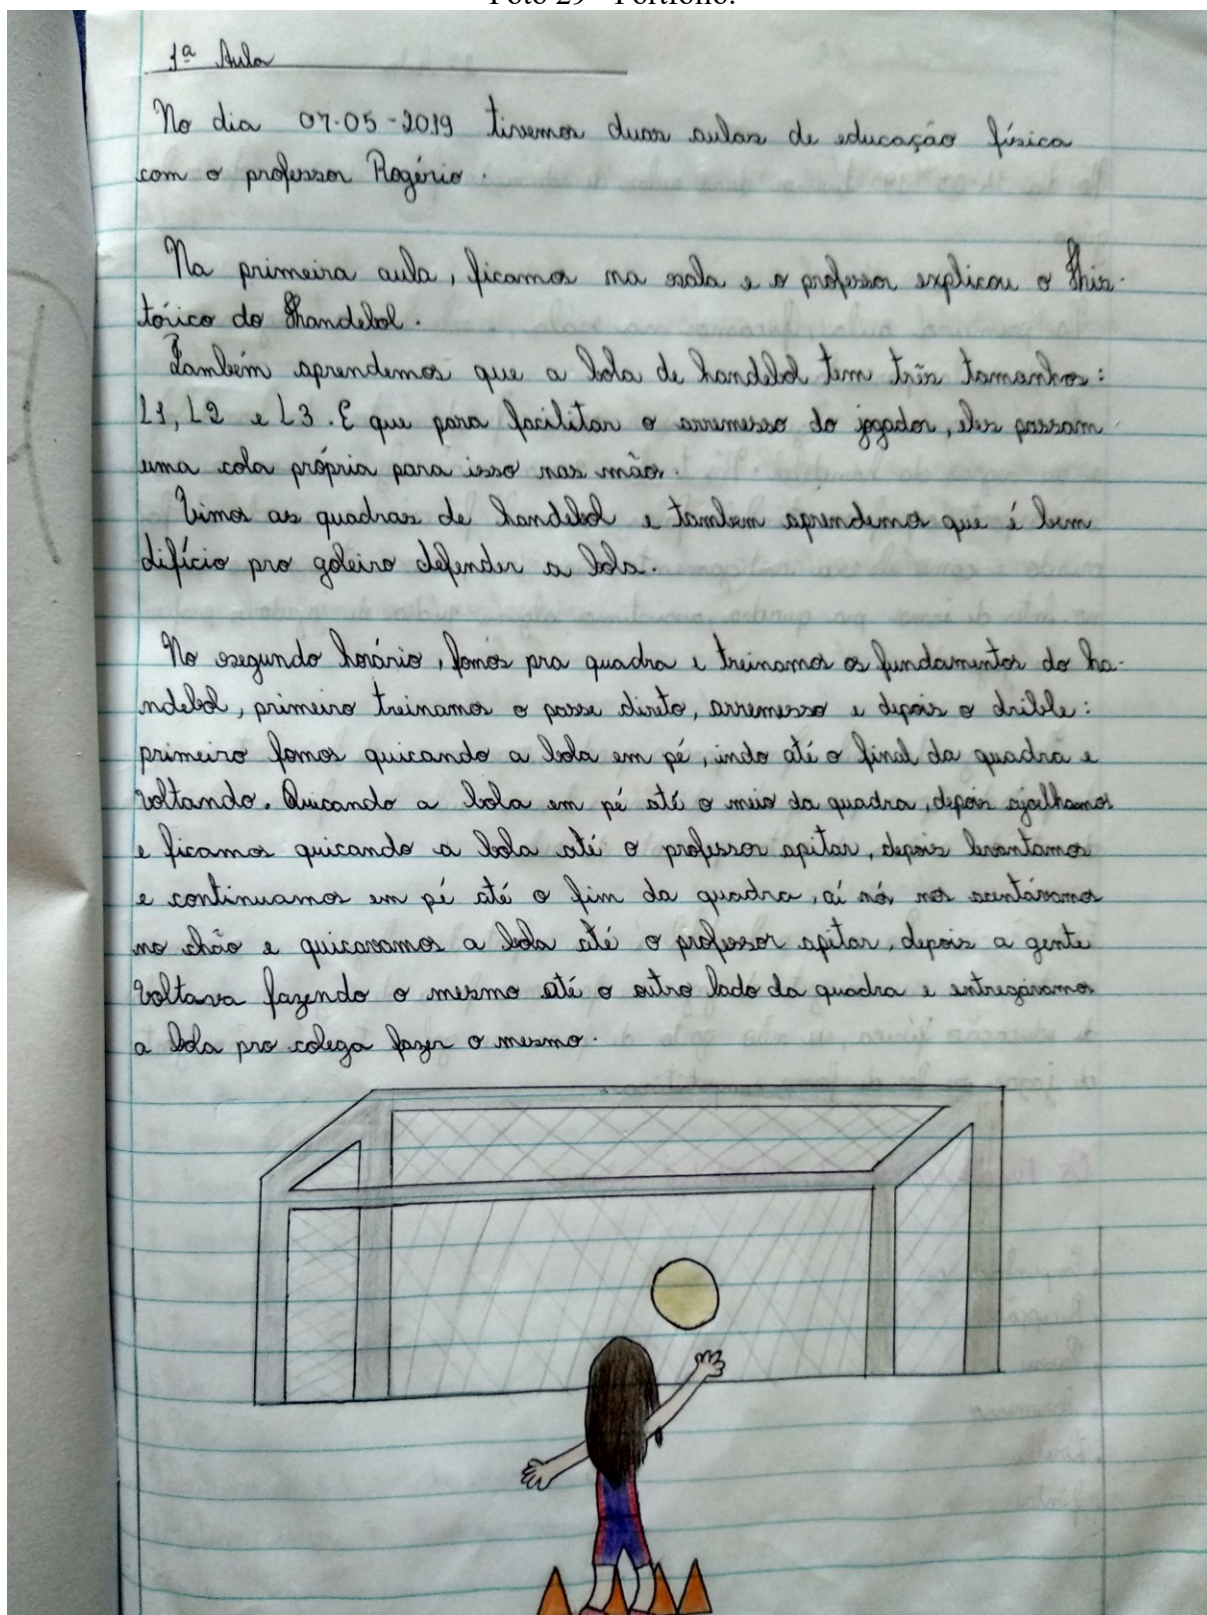 Foto 29 - Portfólio.
1ª Aula
No dia 07-05-2019 tivemos duas aulas de educação física
com o professor Rogério.
Na primeira aula, ficamos na sala e o professor explicou o His-
tórico do Handebol.
Também aprendemos que a bola de handebol tem três tamanhos:
L1, L2 e L3. E que para facilitar o arremesso do jogador, eles passam
uma cola própria para isso nas mãos.
Vimos as quadras de handebol e tambem aprendemos que é bem
difício pro goleiro defender a bola.
No segundo horário, fomos pra quadra e treinamos os fundamentos do ha-
ndebol, primeiro treinamos o passe direto, arremesso e depois o drible:
primeiro fomos quicando a bola em pé, indo até o final da quadra e
voltando. Quicando a bola em pé até o meio da quadra, depois ajoelhamos
e ficamos quicando a bola até o professor apitar, depois levantamos
e continuamos em pé até o fim da quadra, aí nós nos acentávamos
no chão e quicavamos a bola até o professor apitar, depois a gente
voltava fazendo o mesmo até o outro lado da quadra e entregávamos
a bola pro colega fazer o mesmo.